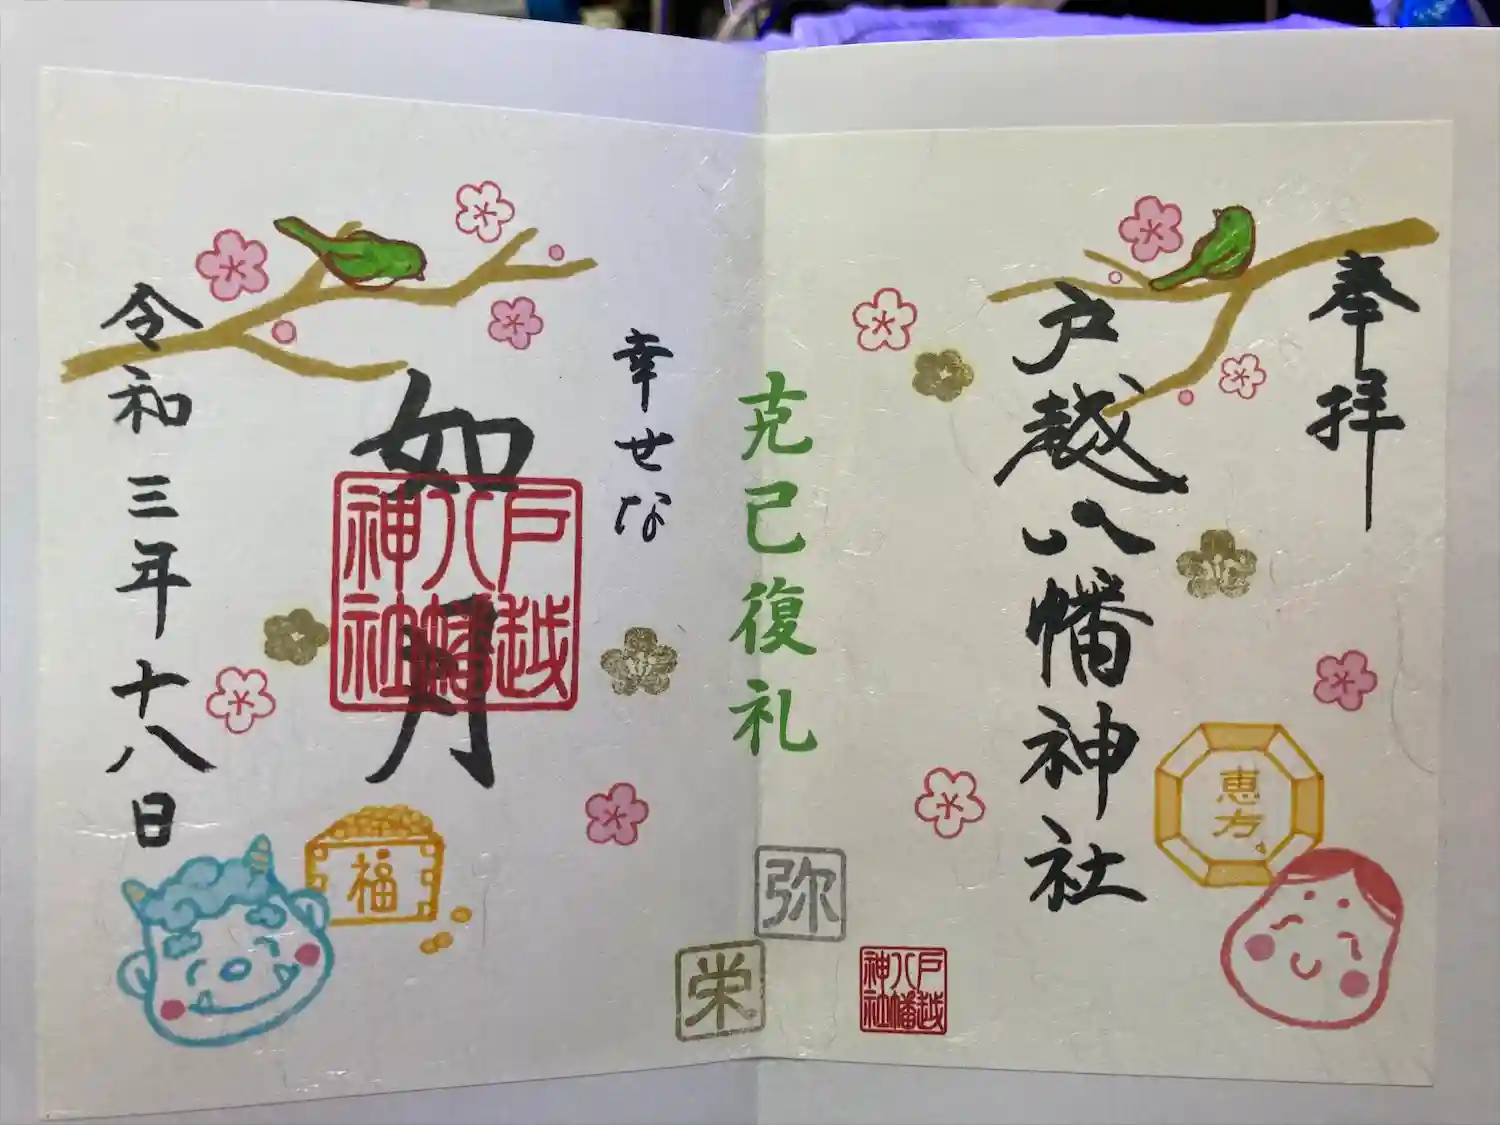 奉拝
戸越八幡神社
恵方
克己復礼
弥
栄
戸越八幡神社
幸せな
如月
戸越八幡神社
福
令和三年十八日